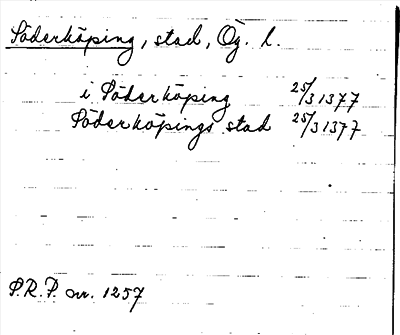 Söderköping, stad, Ög. l.
i Söderköping 25/3 1377
Söderköpings stad 25/3 1377
S.R.P. nr. 1257